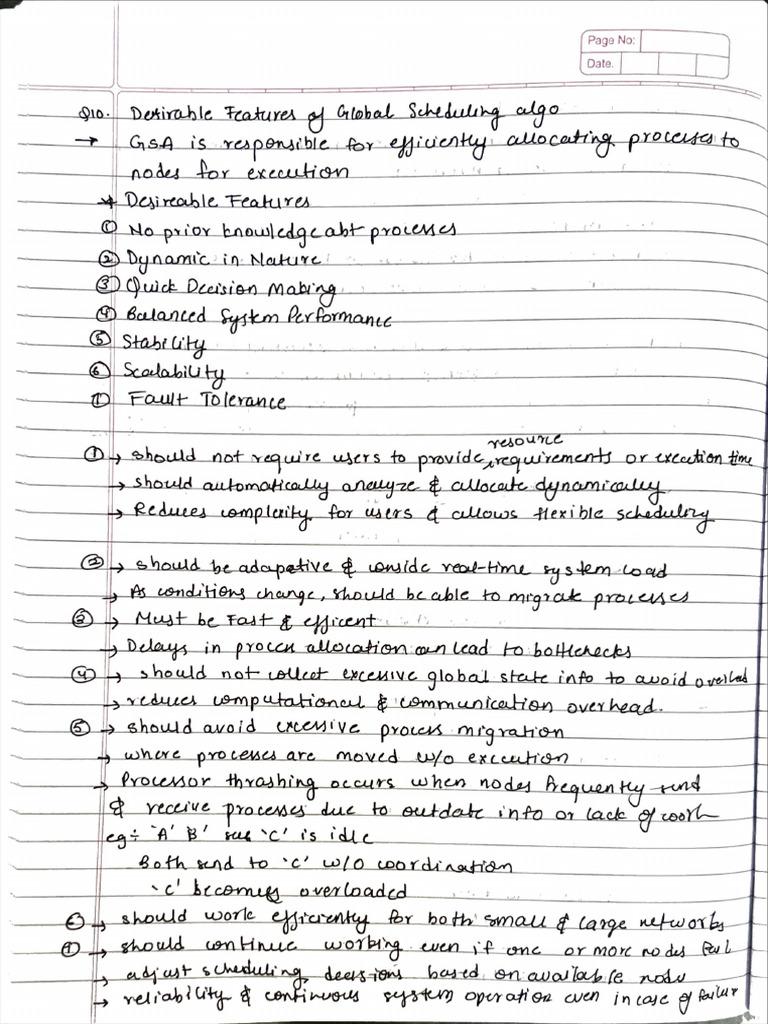 Page No:
Date.
Q10. Desirable Features of Global Scheduling algo
→ GSA is responsible for efficiently allocating processes to
nodes for execution
* Desireable Features
① No prior knowledge abt processes
② Dynamic in Nature
③ Quick Decision Making
④ Balanced System Performance
⑤ Stability
⑥ Scalability
⑦ Fault Tolerance
resource
① → should not require users to provide, requirements or execution time
→ should automatically analyze & allocate dynamically
→ Reduces complexity for users & allows flexible scheduling
② → should be adapative & conside real-time system load
→ As conditions change, should be able to migrate processes
③ → Must be Fast & efficent
→ Delays in process allocation can lead to bottlenecks
④ → should not collect excessive global state info to avoid overload
→ reduces computational & communication overhead.
⑤ → should avoid excessive process migration
→ where processes are moved w/o execution
→ Processor thrashing occurs when nodes frequently send
& receive processes due to outdate info or lack of coord
eg ÷ 'A' B' 'C' is idle
Both send to 'C' w/o coordination
'C' becomes overloaded
⑥ → should work efficiently for both small & large networks
⑦ → should continue working even if one or more nodes fail
→ adjust scheduling decisions based on available nodes
→ reliability & continuous system operation even in case of failure